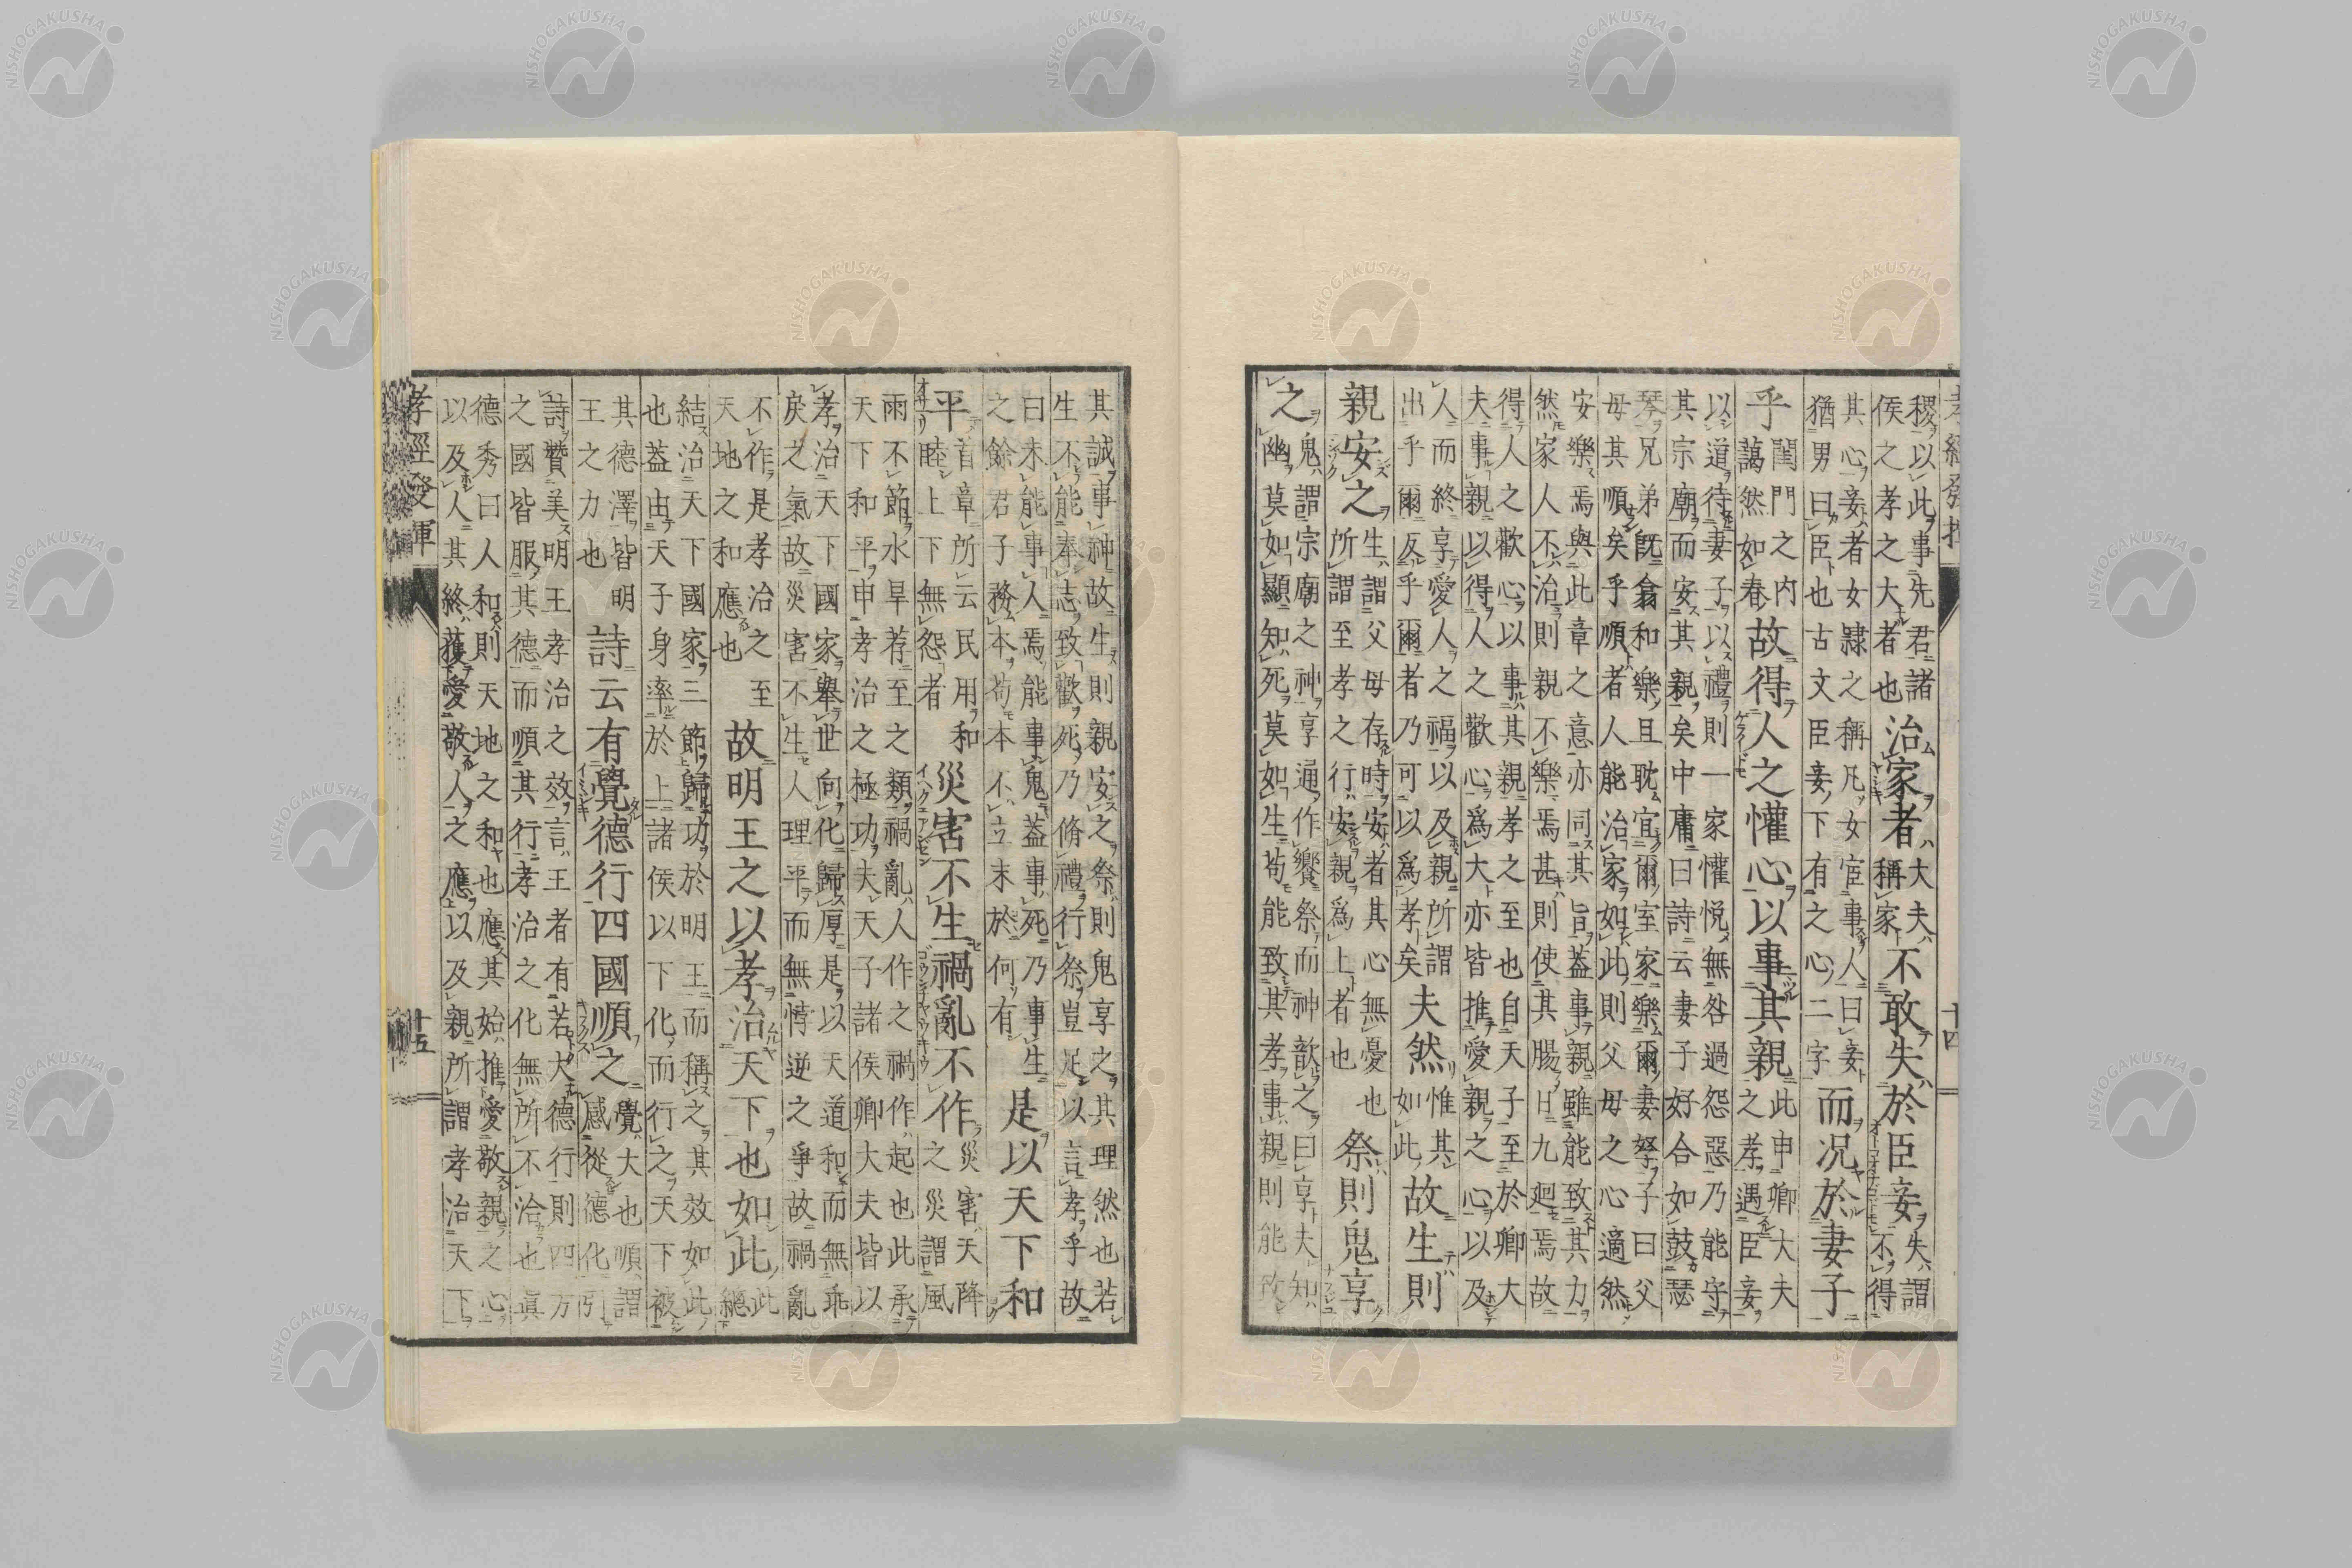 稷以此事先君諸
侯之孝之大者也
治家者
大夫
稱家
不敢失於臣妾
失謂
不得
其心妾者女隷之稱凡女宦事人曰妾
猶男曰臣也古文臣妾下有之心二字
而況於妻子
乎
閨門之内
藹然如春
故得人之懽心以事其親
此申卿大夫
之孝遇臣妾
以道待妻子以禮則一家懽悦無咎過怨惡乃能守
其宗廟而安其親矣中庸曰詩云妻子好合如鼓瑟
琴兄弟既翕和樂且耽宜爾室家樂爾妻孥子曰父
母其順矣乎順者人能治家如此則父母之心適然
安樂焉與此章之意亦同其旨蓋事親雖能致其力
然家人不治則親不樂焉甚則使其腸日九廻焉故
得人之歡心以事其親孝之至也自天子至於卿大
夫事親以得人之歡心爲大亦皆推愛親之心以及
人而終享愛人之福以及親所謂
出乎爾反乎爾者乃可以爲孝矣
夫然
惟其
如此
故生則
親安之
生謂父母存時安者其心無憂也
所謂至孝之行安親爲上者也
祭則鬼享
之
鬼謂宗廟之神享通作饗祭而神歆之曰享夫知
幽莫如顯知死莫如生苟能致其孝事親則能致
十四
其誠事神故生則親安之祭則鬼享之其理然也若
生不能奉志致歡死乃脩禮行祭豈足以言孝乎故
曰未能事人焉能事鬼蓋事死乃事生
之餘君子務本苟本不立末於何有
是以天下和
平
首章所云民用和
睦上下無怨者
災害不生禍亂不作
災害天降
之災謂風
雨不節水旱荐至之類禍亂人作之禍作起也此承
天下和平申孝治之極功夫天子諸侯卿大夫皆以
孝治天下國家舉世向化歸厚是以天道和而無乖
戾之氣故災害不生人理平而無悖逆之爭故禍亂
不作是孝治之至
天地之和應也
故明王之以孝治天下也如此
此
總
結治天下國家三節歸功於明王而稱之其效如此
也蓋由天子身率於上諸侯以下化而行之天下被
其德澤皆明
王之力也
詩云有覺德行四國順之
覺大也順謂
感從德化引
詩贊美明王孝治之效言王者有若大德行則四方
之國皆服其德而順其行孝治之化無所不洽也眞
德秀曰人和則天地之和也應其始推愛敬親之心
以及人其終獲愛敬人之應以及親所謂孝治天下
孝經發揮
十五